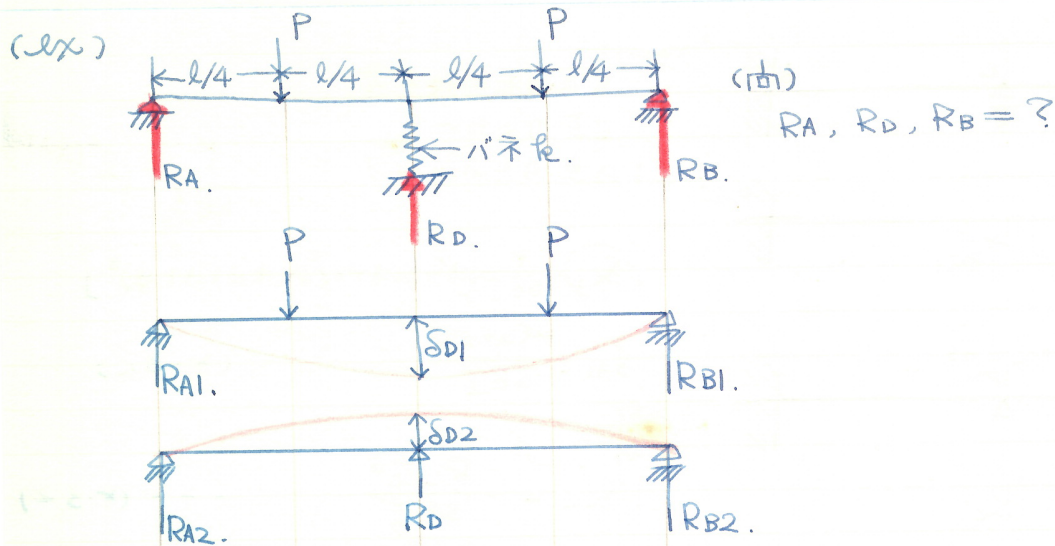 (ex)
P
P
l/4
l/4
l/4
l/4
(问)
RA, RD, RB = ?
バネ k.
RA.
RB.
RD.
P
P
δD1
RA1.
RB1.
δD2
RA2.
RD
RB2.